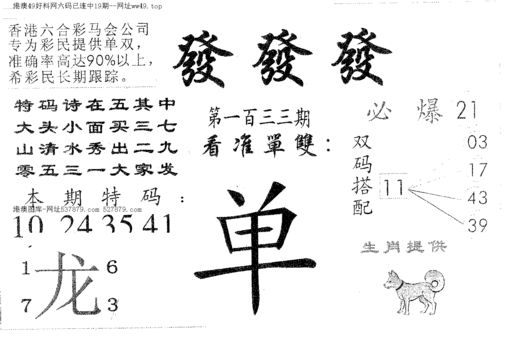 港澳49好料网六码已连中19期--网址ww49.top
香港六合彩马会公司
专为彩民提供单双,
准确率高达90%以上,
希彩民长期跟踪。
發 發 發
特码诗在五其中
大头小面买三七
山清水秀出二九
零五三一大家发
第一百三三期
看准單雙:
单
必爆21
双码搭配
11
03
17
43
39
本期特码:
港澳图库-网址537879.com 527879.com
10 24 35 41
龙
1
6
7
3
生肖提供